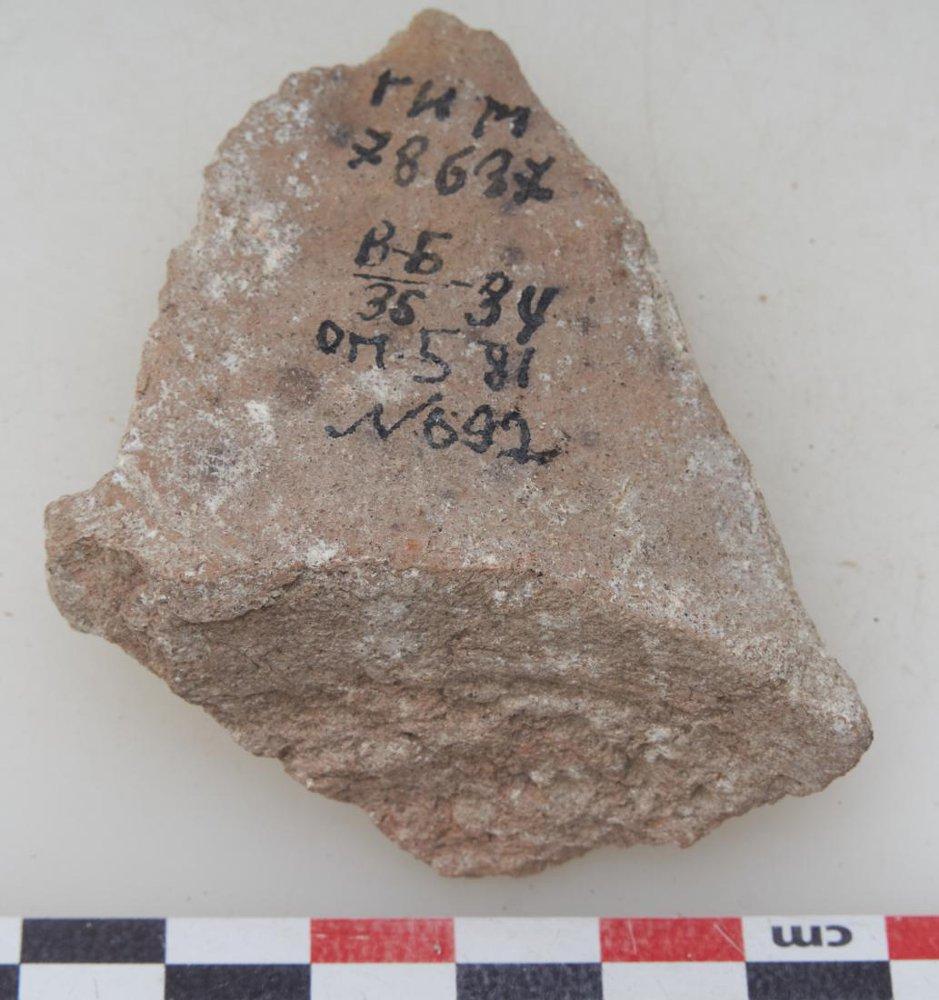 ГИМ
78637
В-Б
35 -34
оп. 5 81
N692
cm